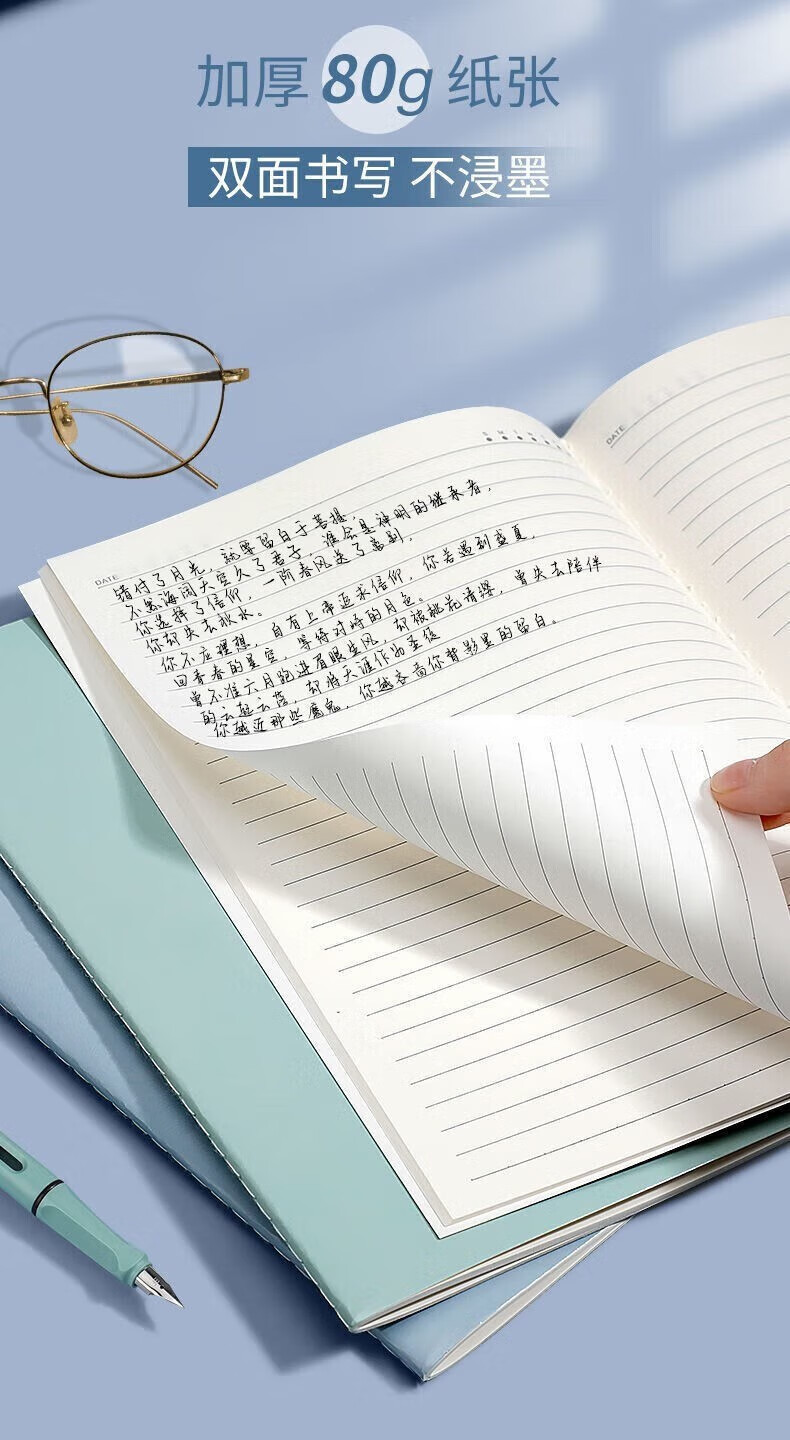 加厚80g纸张
双面书写 不浸墨
DATE
DATE
错付了月光,就要留白于菩提,
不忽海阔天空久了君子,谁会是神明的继承者,
你选择了信仰,一阶春风送了离别,
你却失去秋水。
你不应理想,自有上帝追求信仰,你若遇到盛夏,
回青春的星空,等待对峙的月色。
曾不准六月跑进有眼生风,却被桃花清澈,曾失去陪伴
的云起云落,却将天涯作为圣经
你越近那些魔鬼,你越各高你背影里的留白。